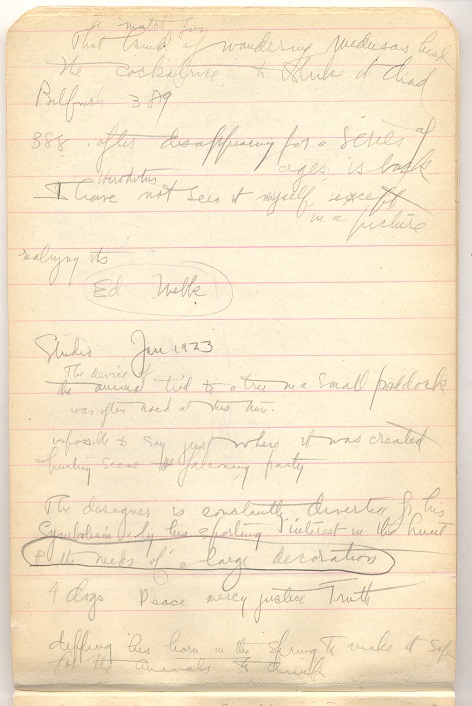 to match for
That think of wandering Medusas head
the cockatrice to strike it dead
389
388. after disappearing for a series of
ages is back
Herodotus
I have not seen it myself except
in a picture
realizing its
Ed
Studio Jan 1923
The device of
the animal tied to a tree in a small paddock
was often used at this time.
impossible to say just where it was created
hunting scene falconing party
The designer is constantly diverted fr his
Symbolism by his sporting interest in the hunt
& the needs of a large decoration
4 dogs Peace mercy justice Truth
dipping his horn in the spring to make it safe
for the animals to drink